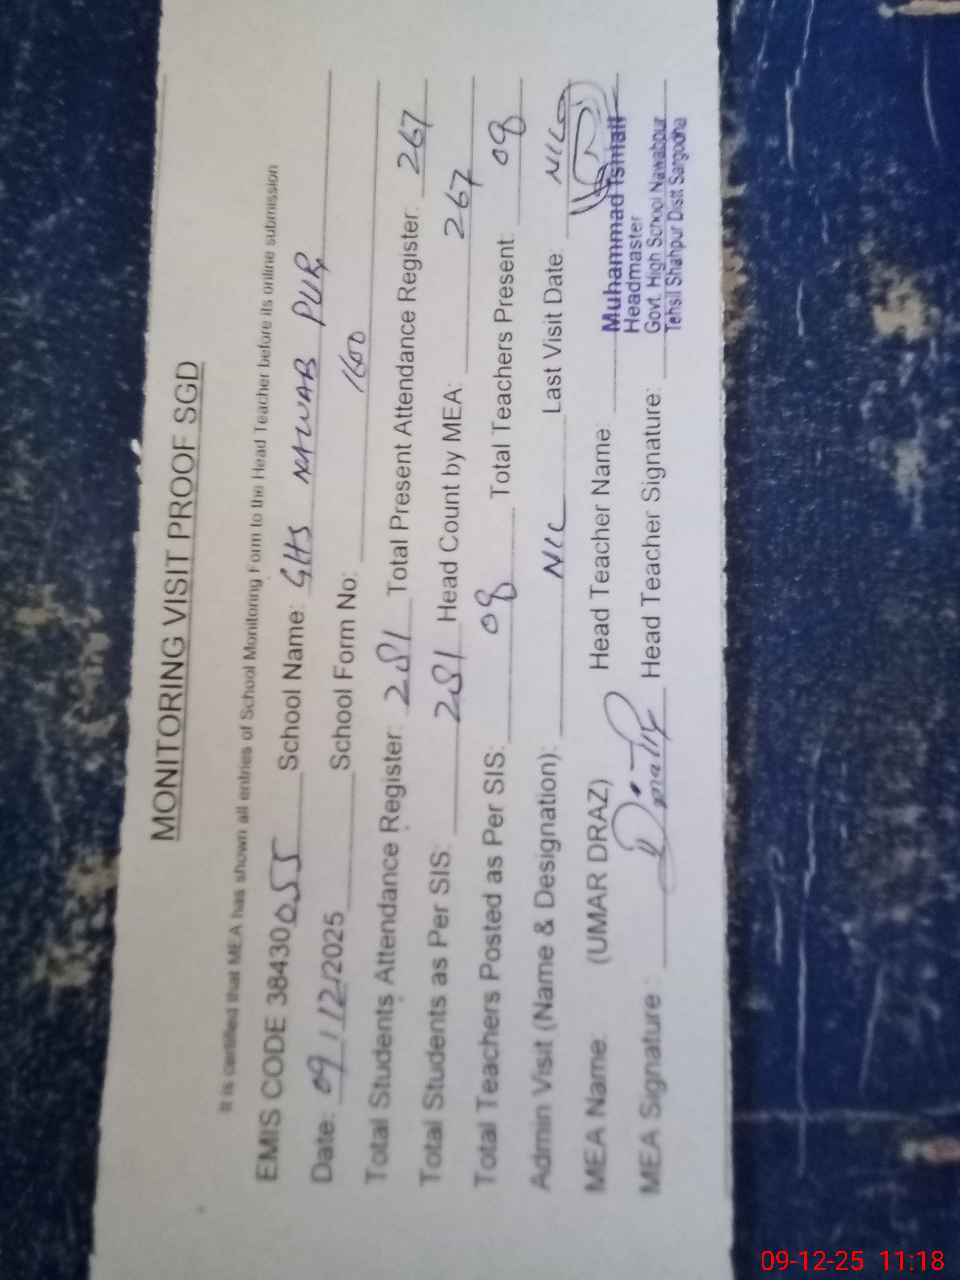 MONITORING VISIT PROOF SGD
It is certified that MEA has shown all entries of School Monitoring Form to the Head Teacher before its online submission
EMIS CODE 38430055 School Name: GHS NAWAB PUR
Date: 09/12/2025 School Form No: 1600
Total Students Attendance Register: 281 Total Present Attendance Register: 267
Total Students as Per SIS: 281 Head Count by MEA: 267
Total Teachers Posted as Per SIS: 08 Total Teachers Present: 08
Admin Visit (Name & Designation): NIL Last Visit Date: NIL
MEA Name: (UMAR DRAZ) Head Teacher Name: Muhammad Ismail
Headmaster
MEA Signature: Head Teacher Signature: Govt. High School Nawabpur
Tehsil Shahpur Distt Sargodha
09-12-25 11:18